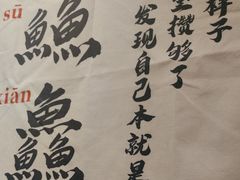 样子
攒够了
发现自己本就是
sū
䲆
xiān
鱻